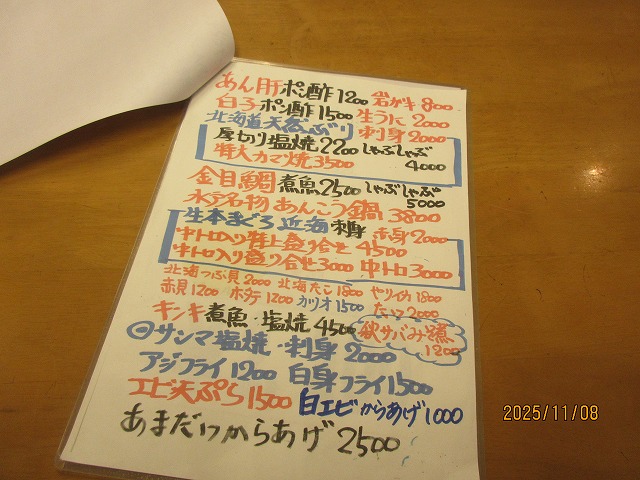 あん肝ポン酢1200 岩がキ800
白子ポン酢1500 生うに2000
北海道天然ぶり 刺身2000
厚切り塩焼2200 しゃぶしゃぶ4000
特大カマ焼3500
金目鯛煮魚2500 しゃぶしゃぶ5000
水戸名物あんこう鍋3800
生本まぐろ近海刺身 赤身2000
中トロ入り特上盛り合せ4500
中トロ入り盛り合せ3000 中トロ3000
北海つぶ貝2000 北海たこ1800 やりイカ1800
赤貝1200 ホタテ1200 カツオ1500 2000
キンキ煮魚・塩焼4500 秋サバみそ煮1200
◎サンマ塩焼・刺身2000
アジフライ1200 白身フライ1500
エビ天ぷら1500 白エビからあげ1000
あまだいからあげ2500
2025/11/08